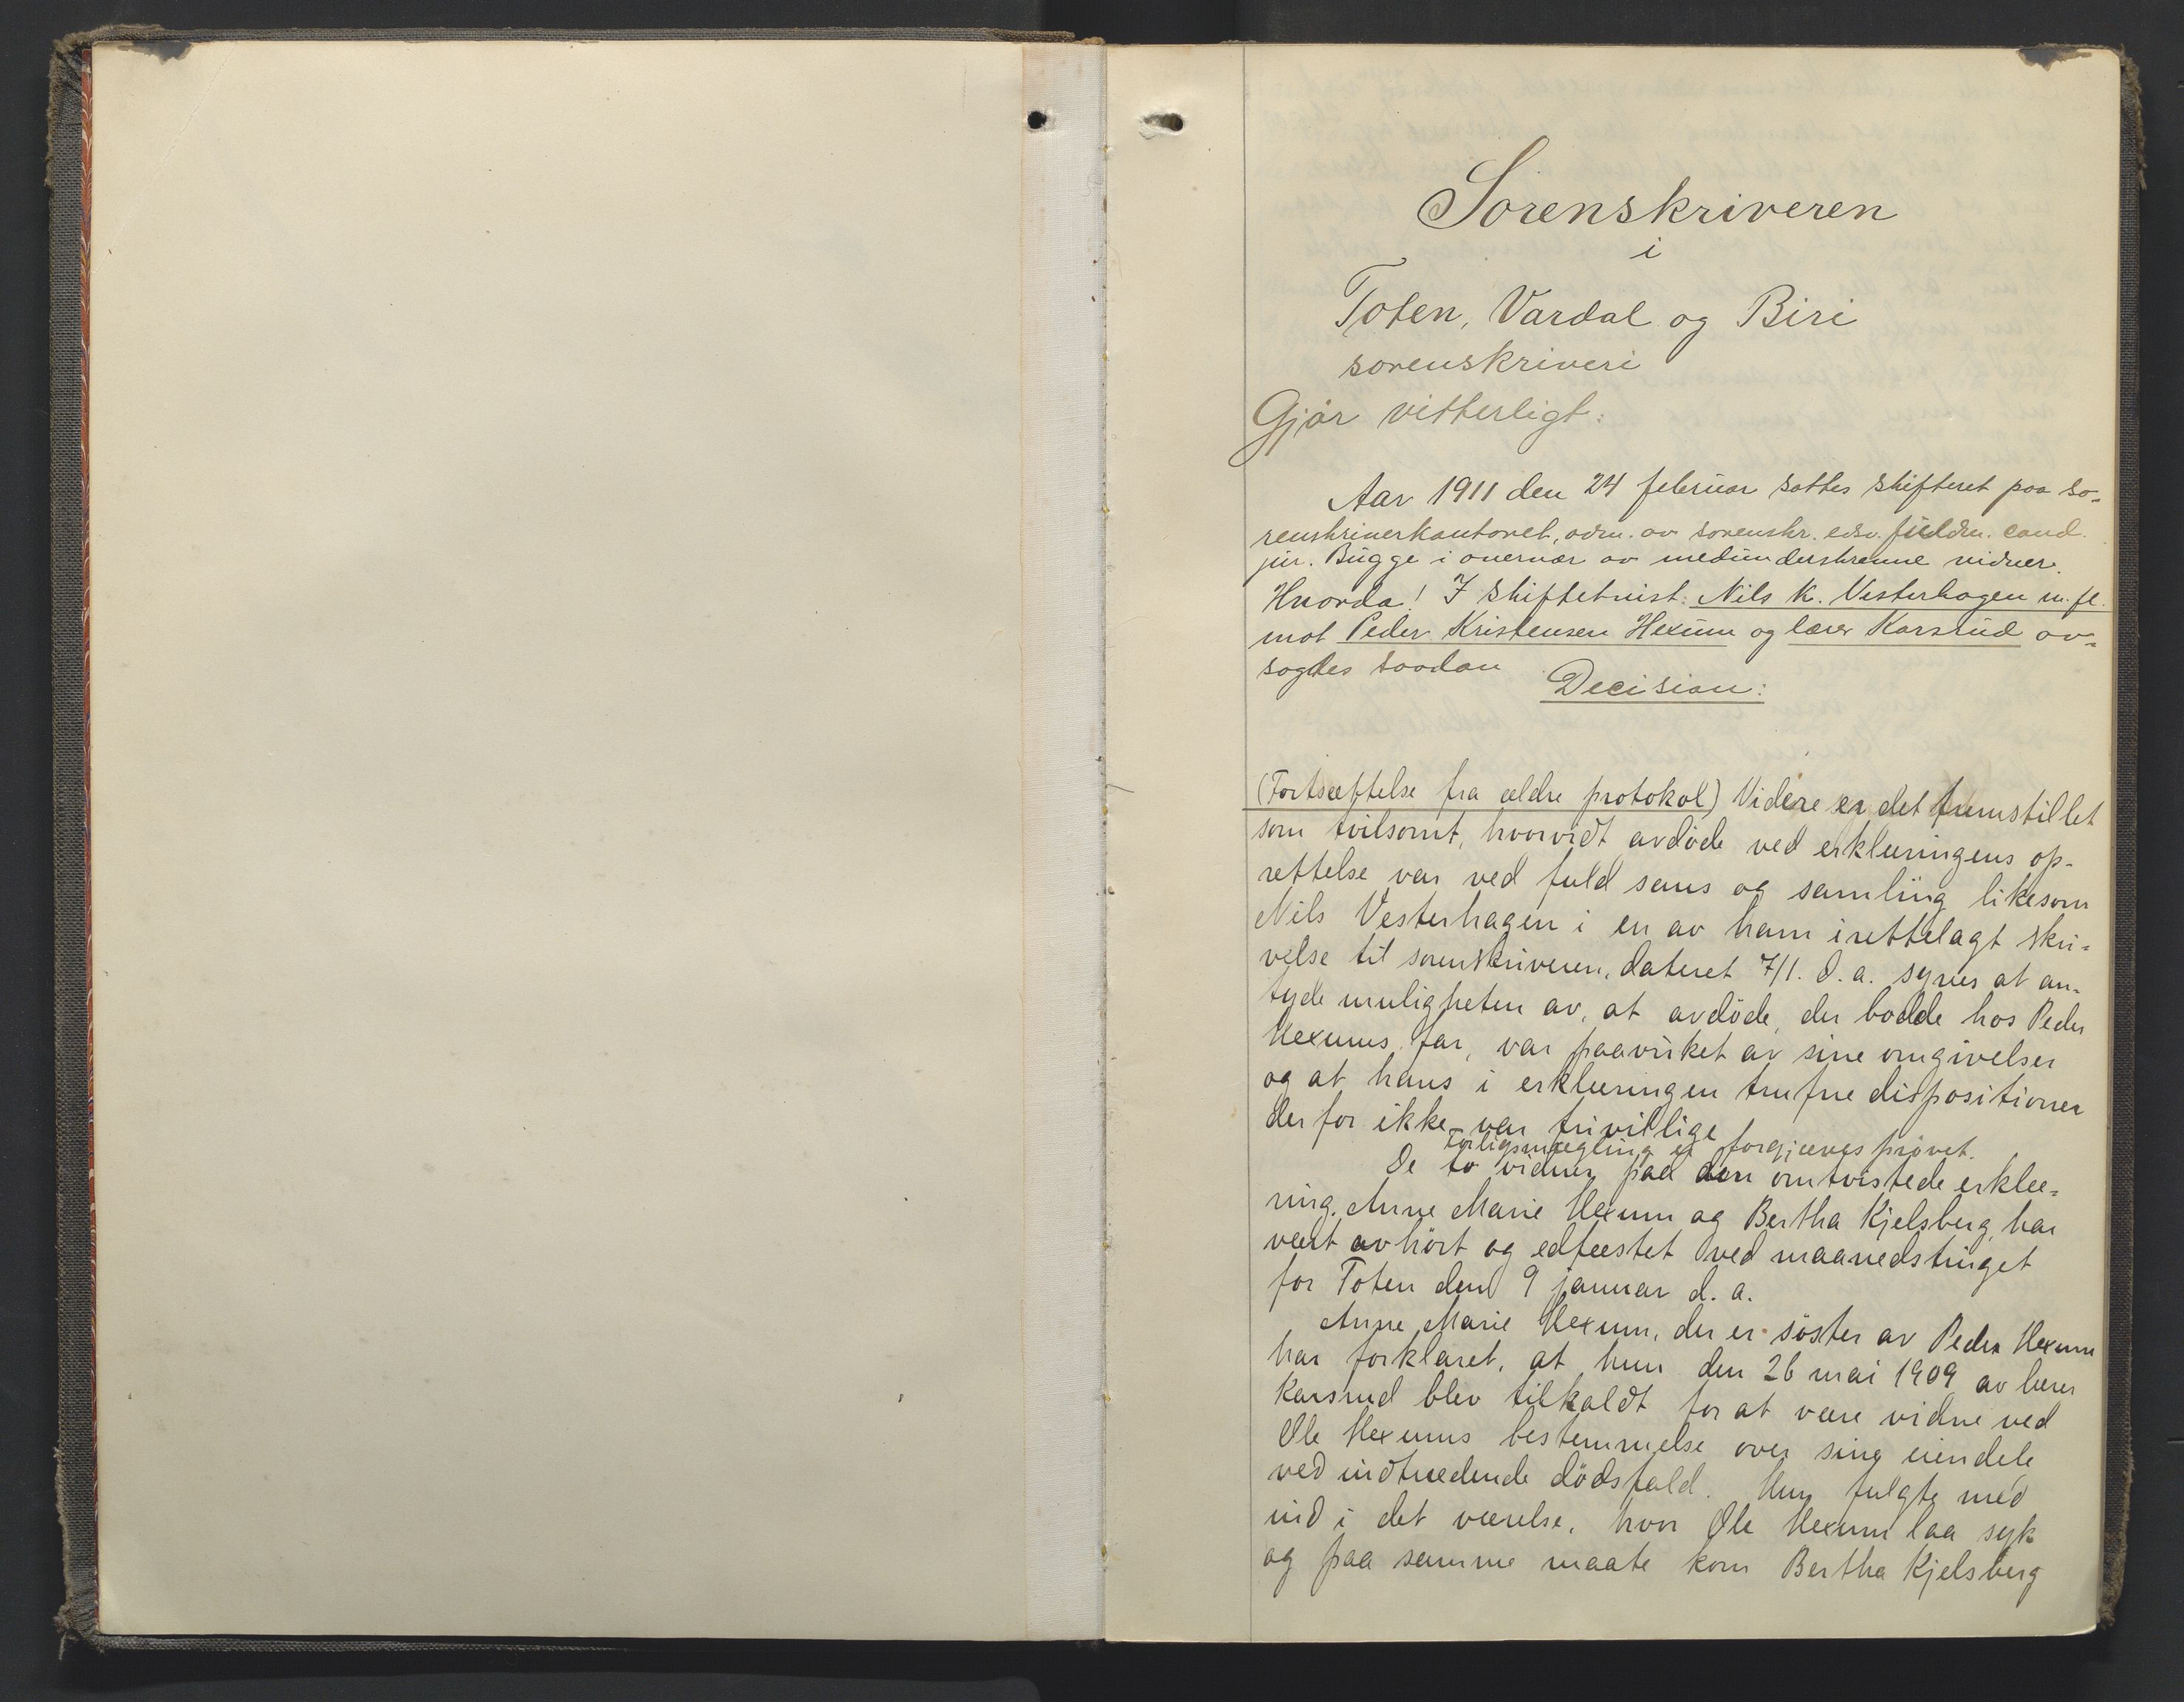 Sorenskriveren
i
Toten, Vardal og Biri
sorenskriveri
Gjør vitterligt:
Aar 1911 den 24 februar sattes skifteret paa so-
renskriverkontoret, adm. av sorenskr. edsv. fuldm. cand.
jur. Bugge i overvær av medunderskrevne vidner.
Hvorda! I skiftetvist: Nils K. Vesterhagen m. fl.
mot Peder Kristensen Hexum og lærer Karsrud av-
sagdes saadan
Decision:
(Fortsættelse fra ældre protokol) Videre er det fremstillet
som tvilsomt, hvorvidt avdøde ved erklæringens op-
rettelse var ved fuld sans og samling likesom
Nils Vesterhagen i en av ham irettelagt skri-
velse til sorenskriveren, dateret 7/1. d. a. synes at an-
tyde muligheten av, at avdøde, der bodde hos Peder
Hexums far, var paavirket av sine omgivelser
og at hans i erklæringen trufne dispositioner
derfor ikke var frivillige
Forligsmægling er forgjæves prøvet.
De to vidner paa den omtvistede erklæ-
ring. Anne Marie Hexum og Bertha Kjelsberg, har
vært avhørt og edfæstet ved maanedstinget
for Toten den 9 januar d. a.
Anne Marie Hexum, der er søster av Peder Hexum
har forklaret, at hun den 26 mai 1909 av lærer
Karsrud blev tilkaldt for at være vidne ved
Ole Hexums bestemmelse over sine eiendele
ved indtrædende dødsfald. Hun fulgte med
ind i det værelse, hvor Ole Hexum laa syk
og paa samme maate kom Bertha Kjelsberg